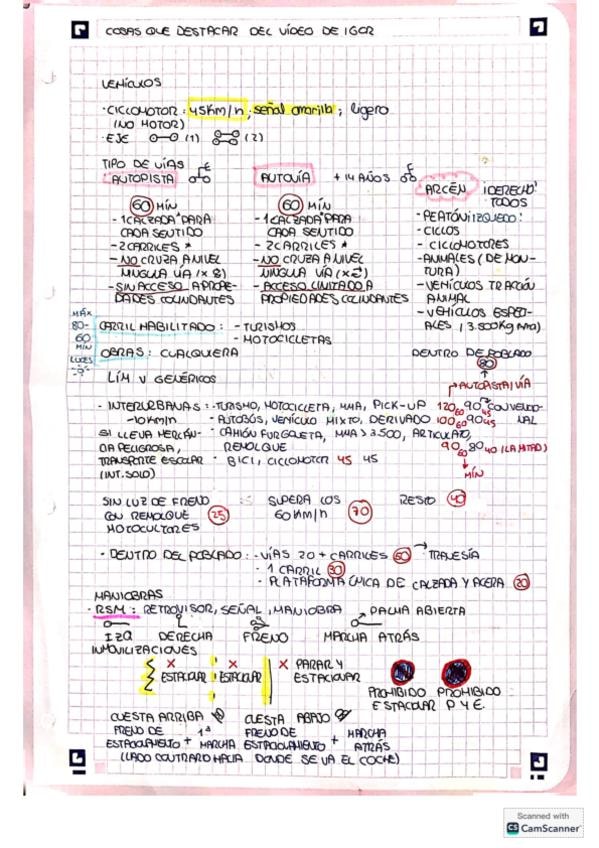 COSAS QUE DESTACAR DEL VÍDEO DE IGOR
VEHÍCULOS
· CICLOMOTOR: 45Km/h; señal amarilla; ligero
(NO MOTOR)
· EJE (1) (2)
TIPO DE VÍAS
AUTOPISTA
60 MÍN
- 1 CALZADA PARA
CADA SENTIDO
- 2 CARRILES *
- NO CRUZA A NIVEL
NINGUNA VÍA
- SIN ACCESO A PROPIE-
DADES COLINDANTES
AUTOVÍA + 14 AÑOS
60 MÍN
- 1 CALZADA PARA
CADA SENTIDO
- 2 CARRILES *
- NO CRUZA A NIVEL
NINGUNA VÍA
- ACCESO LIMITADO A
PROPIEDADES COLINDANTES
ARCÉN ¡DERECHO!
TODOS
- PEATÓN ¡IZQUEDO!
- CICLOS
- CICLOMOTORES
- ANIMALES (DE MON-
TURA)
- VEHÍCULOS TRACCIÓN
ANIMAL
- VEHÍCULOS ESPECI-
ALES (3.500Kg MMA)
MÁX
80-
60
MÍN
LUCES
CARRIL HABILITADO: - TURISMOS
- MOTOCICLETAS
OBRAS: CUALQUIERA
DENTRO DE POBLADO
80
AUTOPISTA/VÍA
LÍM V GENÉRICOS
· INTERURBANAS: - TURISMO, MOTOCICLETA, MMA, PICK-UP 120 60 90 45 CONVENCIO-
NAL
-10Km/h · AUTOBÚS, VEHÍCULO MIXTO, DERIVADO 100 60 90 45
SI LLEVA MERCAN- · CAMIÓN FURGONETA, MMA > 3.500, ARTICULADO,
CÍA PELIGROSA, REMOLQUE 90 60 80 40 (LA MITAD)
TRANSPORTE ESCOLAR · BICI, CICLOMOTOR 45 45 MÍN
(INT. SOLO)
SIN LUZ DE FRENO
CON REMOLQUE 25
MOTOCULTORES
SUPERA LOS
60 KM/h 70
RESTO 40
· DENTRO DEL POBLADO: - VÍAS 20+ CARRILES 50 TRAVESÍA
- 1 CARRIL 30
- PLATAFORMA ÚNICA DE CALZADA Y ACERA 20
MANIOBRAS
· RSM: RETROVISOR, SEÑAL, MANIOBRA PALMA ABIERTA
IZQ DERECHA FRENO MARCHA ATRÁS
INMOVILIZACIONES
X ESTACIONAR
X ESTACIONAR
X PARAR Y
ESTACIONAR
PROHIBIDO
ESTACIONAR
PROHIBIDO
P Y E.
CUESTA ARRIBA
FRENO DE 1ª
ESTACIONAMIENTO + MARCHA
CUESTA ABAJO
FRENO DE MARCHA
ESTACIONAMIENTO + ATRÁS
(LADO CONTRARIO HACIA DONDE SE VA EL COCHE)
Scanned with
CS CamScanner